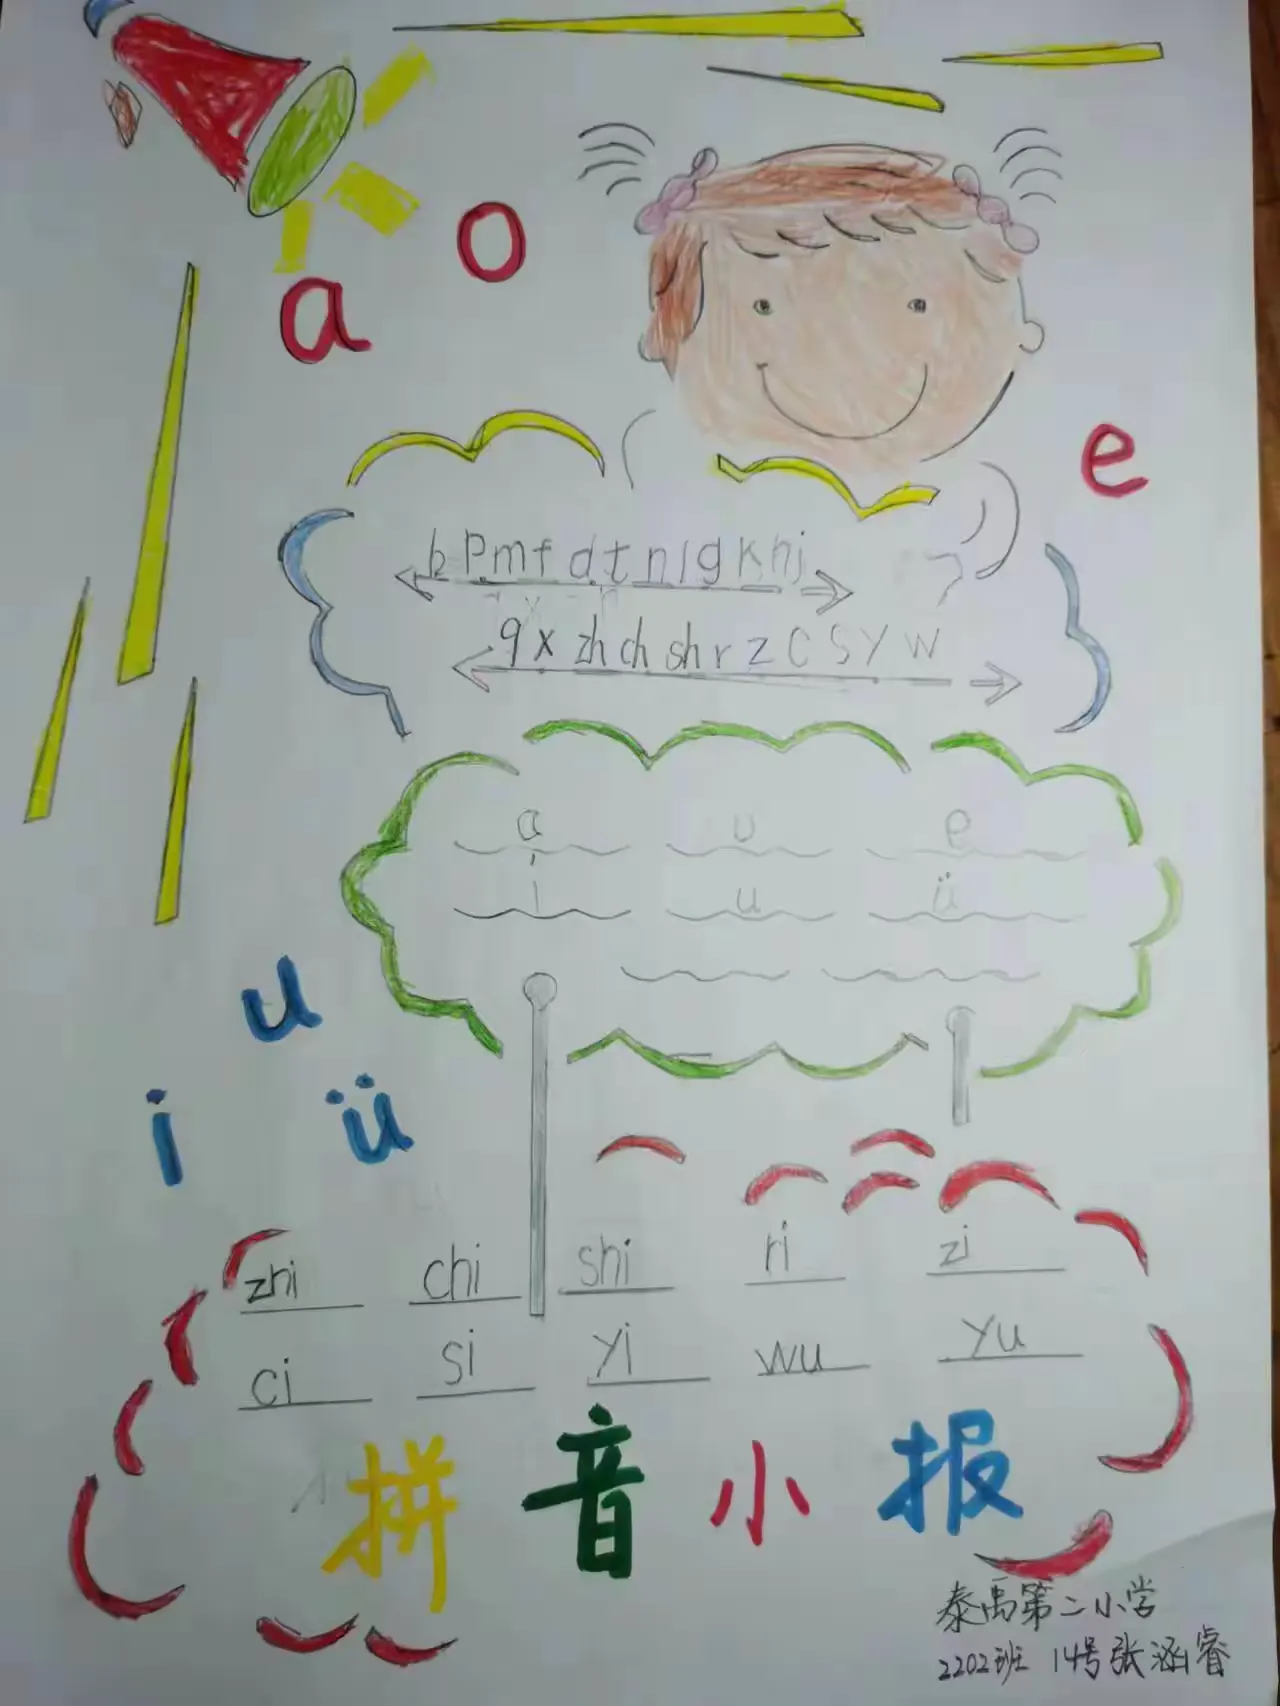 o
a
e
b p m f d t n l g k h j
q x zh ch sh r z c s y w
a u e
i u ü
u
i ü
zhi chi shi ri zi
ci si yi wu yu
拼音小报
泰禹第二小学
2202班 14号张涵睿